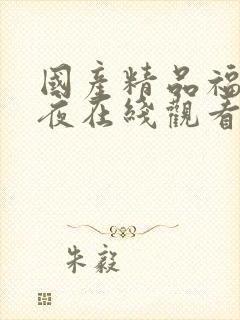 國產精品福
夜在綫觀看
朱毅